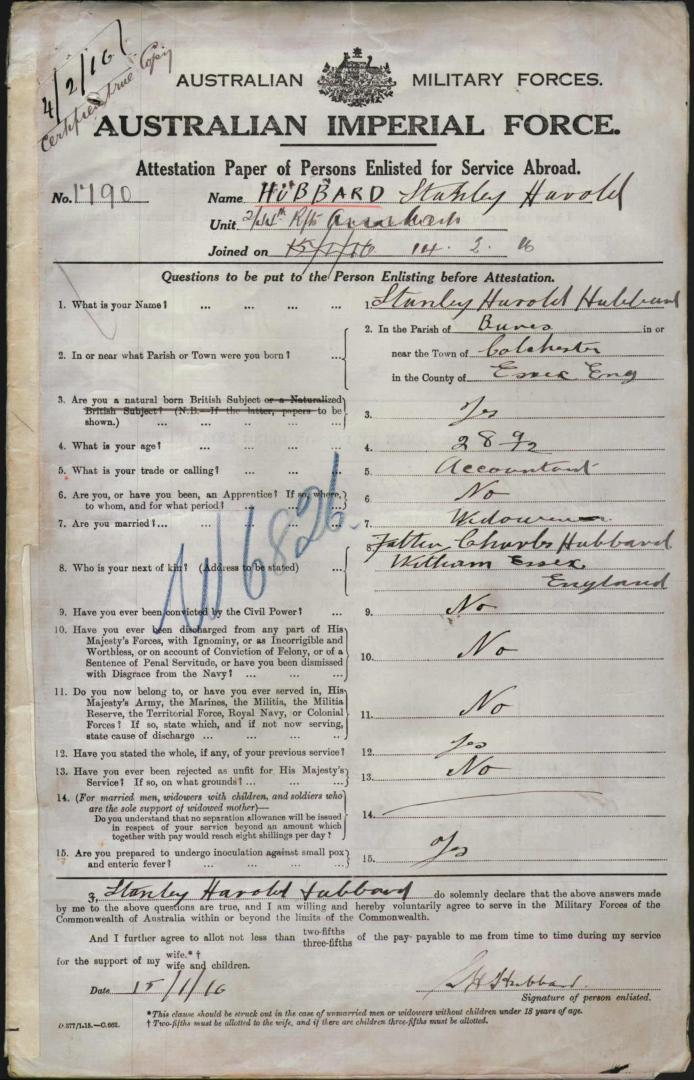 4/2/16
Certified True Copy
AUSTRALIAN MILITARY FORCES.
AUSTRALIAN IMPERIAL FORCE.
Attestation Paper of Persons Enlisted for Service Abroad.
No. 1790 Name HUBBARD Stanley Harold
Unit
Joined on 15/1/16 14. 2. 16
Questions to be put to the Person Enlisting before Attestation.
1. What is your Name? ... ... ... ... 1. Stanley Harold Hubbard
2. In or near what Parish or Town were you born? ... ...
2. In the Parish of Bures in or
near the Town of Colchester
in the County of Essex Eng
3. Are you a natural born British Subject or a Naturalized
British Subject? (N.B.—If the latter, papers to be
shown.) ... ... ... ... ... 3. Yes
4. What is your age? ... ... ... ... 4. 28 9/12
5. What is your trade or calling? ... ... ... 5. Accountant
6. Are you, or have you been, an Apprentice? If so, where,
to whom, and for what period? ... ... ... 6. No
7. Are you married?... ... ... ... ... 7. Widower
8. Who is your next of kin? (Address to be stated) ...
8. Father Charles Hubbard
Witham Essex
England
W6826
9. Have you ever been convicted by the Civil Power? ... 9. No
10. Have you ever been discharged from any part of His
Majesty's Forces, with Ignominy, or as Incorrigible and
Worthless, or on account of Conviction of Felony, or of a
Sentence of Penal Servitude, or have you been dismissed
with Disgrace from the Navy? ... ... ... 10. No
11. Do you now belong to, or have you ever served in, His
Majesty's Army, the Marines, the Militia, the Militia
Reserve, the Territorial Force, Royal Navy, or Colonial
Forces? If so, state which, and if not now serving,
state cause of discharge ... ... ... .. 11. No
12. Have you stated the whole, if any, of your previous service? 12. Yes
13. Have you ever been rejected as unfit for His Majesty's
Service? If so, on what grounds? ... ... ... 13. No
14. (For married men, widowers with children, and soldiers who
are the sole support of widowed mother)—
Do you understand that no separation allowance will be issued
in respect of your service beyond an amount which
together with pay would reach eight shillings per day? 14.
15. Are you prepared to undergo inoculation against small pox
and enteric fever? ... ... ... ... 15. Yes
I, Stanley Harold Hubbard do solemnly declare that the above answers made
by me to the above questions are true, and I am willing and hereby voluntarily agree to serve in the Military Forces of the
Commonwealth of Australia within or beyond the limits of the Commonwealth.
And I further agree to allot not less than two-fifths three-fifths of the pay payable to me from time to time during my service
for the support of my wife.*† wife and children.
Date 15/1/16 S H Hubbard.
Signature of person enlisted.
*This clause should be struck out in the case of unmarried men or widowers without children under 18 years of age.
D.377/1.15.—C.662. † Two-fifths must be allotted to the wife, and if there are children three-fifths must be allotted.